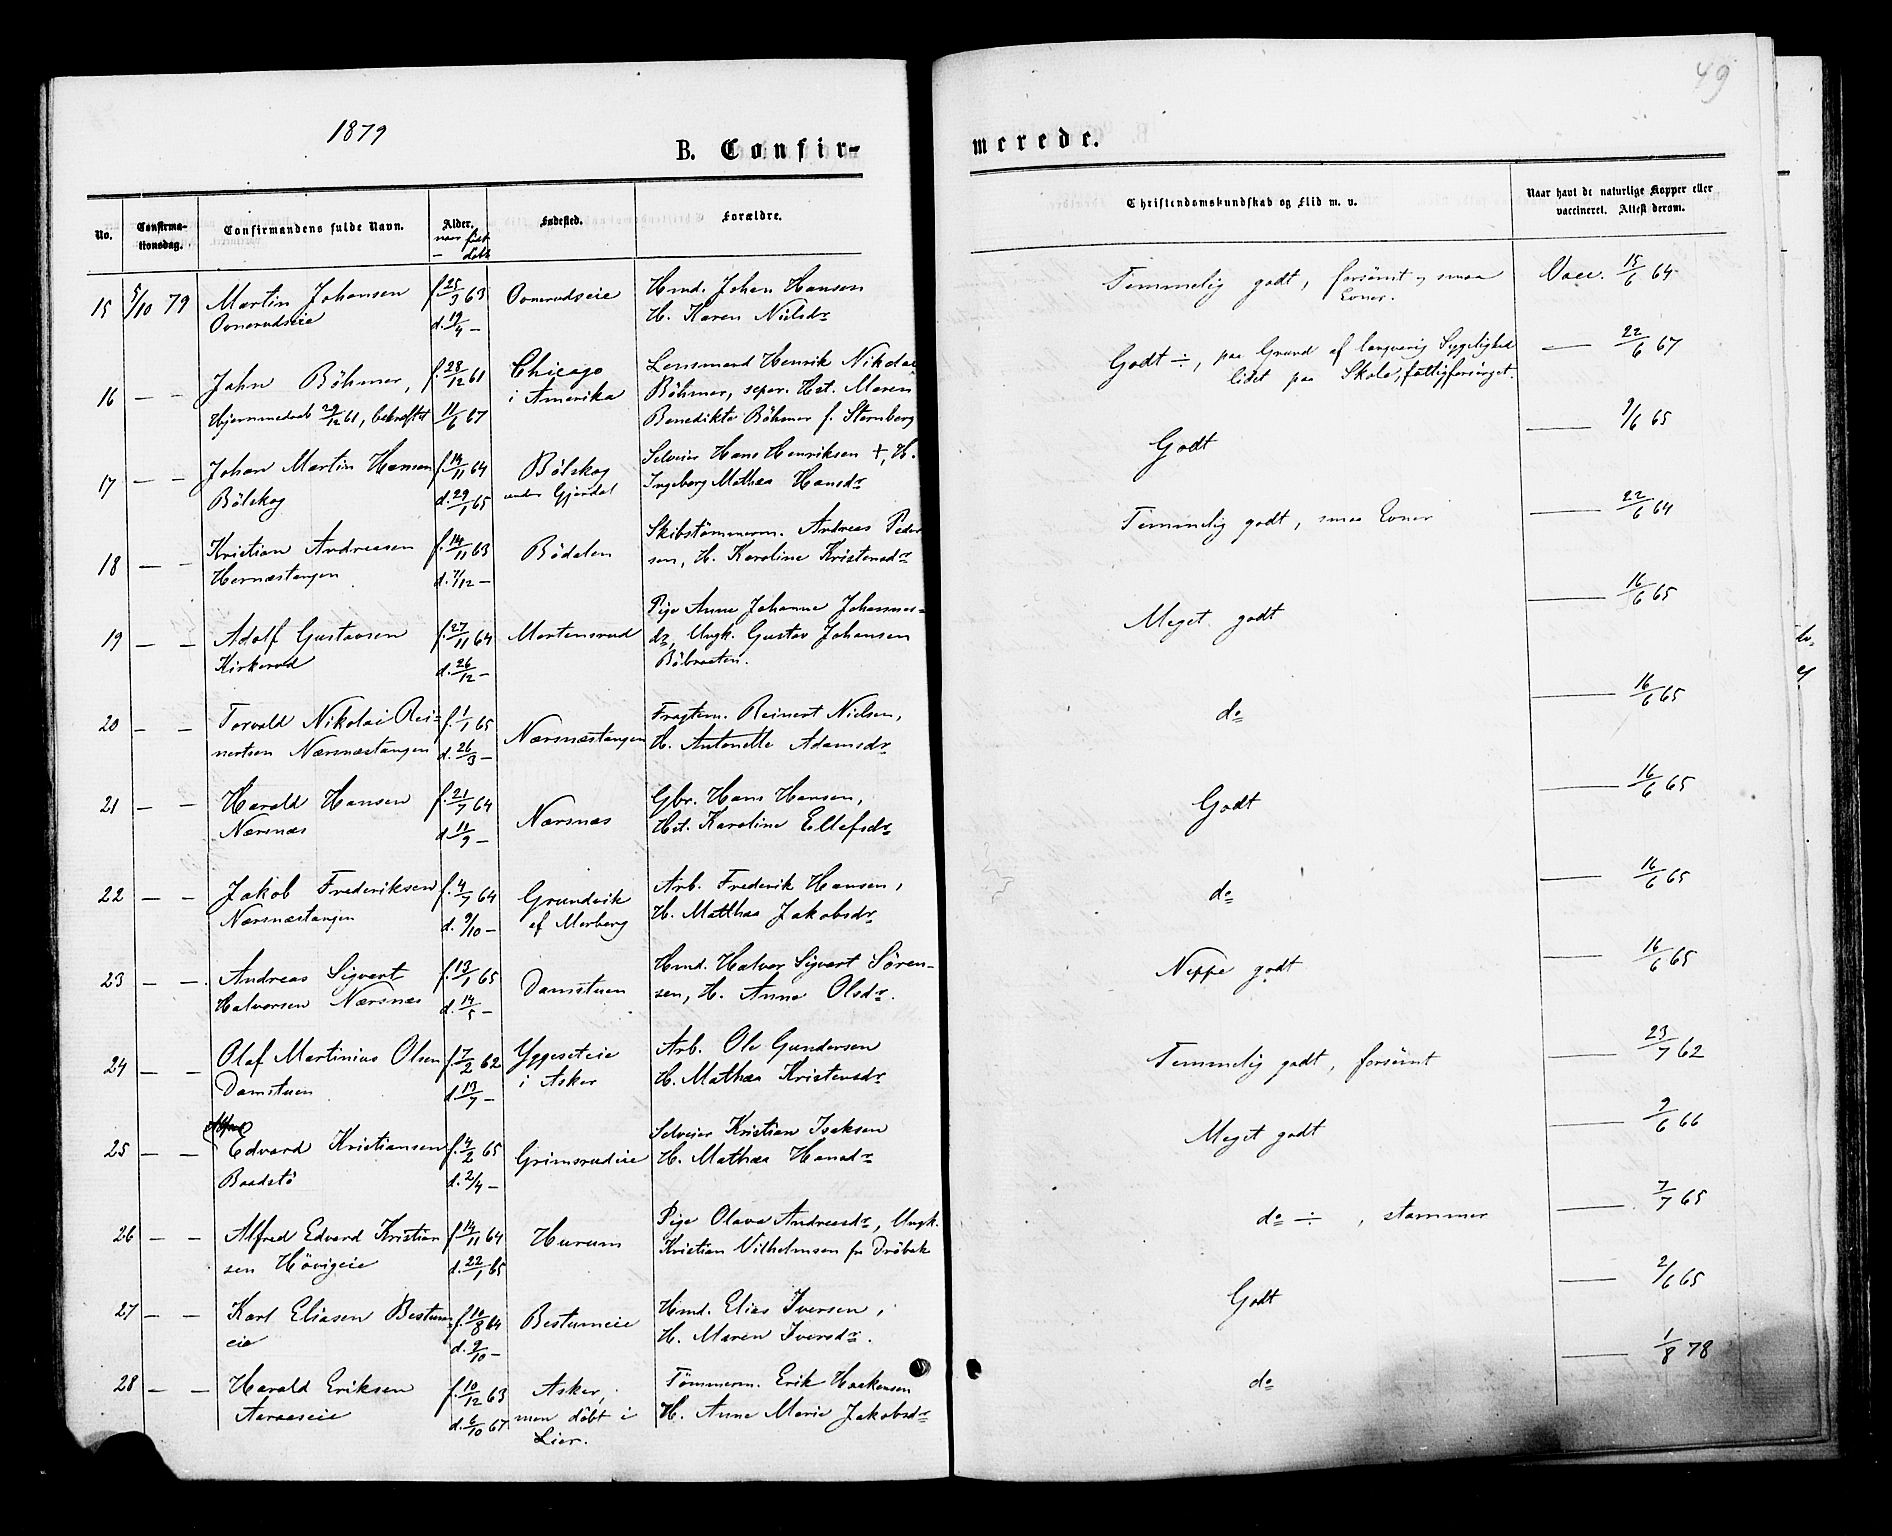 49
1879
B. Confir-
merede.
No.
Confirma-
tionsdag.
Confirmandens fulde Navn.
Alder,
naar født
— døbt
Fødested.
Forældre.
Christendomskundskab og Flid m. v.
Naar havt de naturlige Kopper eller
vaccineret. Attest derom.
15 5/10 79 Martin Johansen f. 25/3 63 Ovnerudseie Hmd. Johan Hansen Temmelig godt, forsömt og smaa Vacc. 15/6 64
Ovnerudseie d. 19/4 — H. Karen Nilsdr Evner.
16 — — John Böhmer, f. 28/12 61 Chicago Lensmand Henrik Nikolai Godt ÷, paa Grund af langvarig Sygelighed — 22/6 67
Hjemmedøbt 29/12 61, bekræftet 11/6 67 i Amerika Böhmer, separ. Hst. Maren lidet paa Skole, fattigforsörget.
Benedikte Böhmer f. Sternberg
17 — — Johan Martin Hansen f. 14/11 64 Bölskog Selveier Hans Henriksen +, H. Godt — 9/6 65
Bölskog d. 29/1 65 under Gjerdal Ingeborg Mathea Hansdr
18 — — Kristian Andreasen f. 14/11 63 Bödalen Skibstömmerm. Andreas Peder- Temmelig godt, smaa Evner — 22/6 64
Hernæstangen d. 7/12 — sen, H. Karoline Kristensdr
19 — — Adolf Gustavsen f. 27/11 64 Mortensrud Pige Anne Johanne Johannes- Meget godt — 16/6 65
Kirkerud d. 26/12 — dr, Ungk. Gustav Johansen
Böbraaten.
20 — — Torvald Nikolai Rei- f. 1/1 65 Nærsnæstangen Fragtem. Reinert Nielsen, do — 16/6 65
nertsen Nærsnæstangen d. 26/3 — H. Antonette Adamsdr
21 — — Harald Hansen f. 21/7 64 Nærsnæs Gbr. Hans Hansen, Godt — 16/6 65
Nærsnæs d. 11/9 — Hst. Karoline Ellefsdr
22 — — Jakob Frederiksen f. 4/7 64 Grundvik Arb. Frederik Hansen, do — 16/6 65
Nærsnæstangen d. 9/10 — af Morberg H. Mathea Jakobsdr
23 — — Andreas Sigvart f. 19/1 65 Damstuen Hmd. Halvor Sigvart Sören- Neppe godt — 16/6 65
Halvorsen Nærsnæs d. 14/5 — sen, H. Anne Olsdr.
24 — — Olaf Martinius Olsen f. 7/2 62 Yggeseteie Arb. Ole Gundersen Temmelig godt, forsömt — 23/7 62
Damstuen d. 13/7 — i Asker H. Mathea Kristensdr
25 — — Edvard Kristiansen f. 4/2 65 Grimsrudeie Selveier Kristian Isaksen Meget godt — 9/6 66
Baadstö d. 2/4 — H. Mathea Hansdr
26 — — Alfred Edvard Kristian f. 14/11 64 Hurum Pige Olava Andreasdr, Ungk. do ÷, stammer — 7/7 65
sen Hövigeie d. 22/1 65 Kristian Vilhelmsen fr Dröbak
27 — — Karl Eliasen Bestum- f. 10/8 64 Bestumeie Hmd. Elias Iversen, Godt — 2/6 65
eie d. 9/10 — H. Maren Iversdr.
28 — — Harald Eriksen f. 10/12 63 Asker, Tömmerm. Erik Haakensen do — 1/8 78
Aaraaseie d. 6/10 67 men döbt i H. Anne Marie Jakobsdr
Lier.